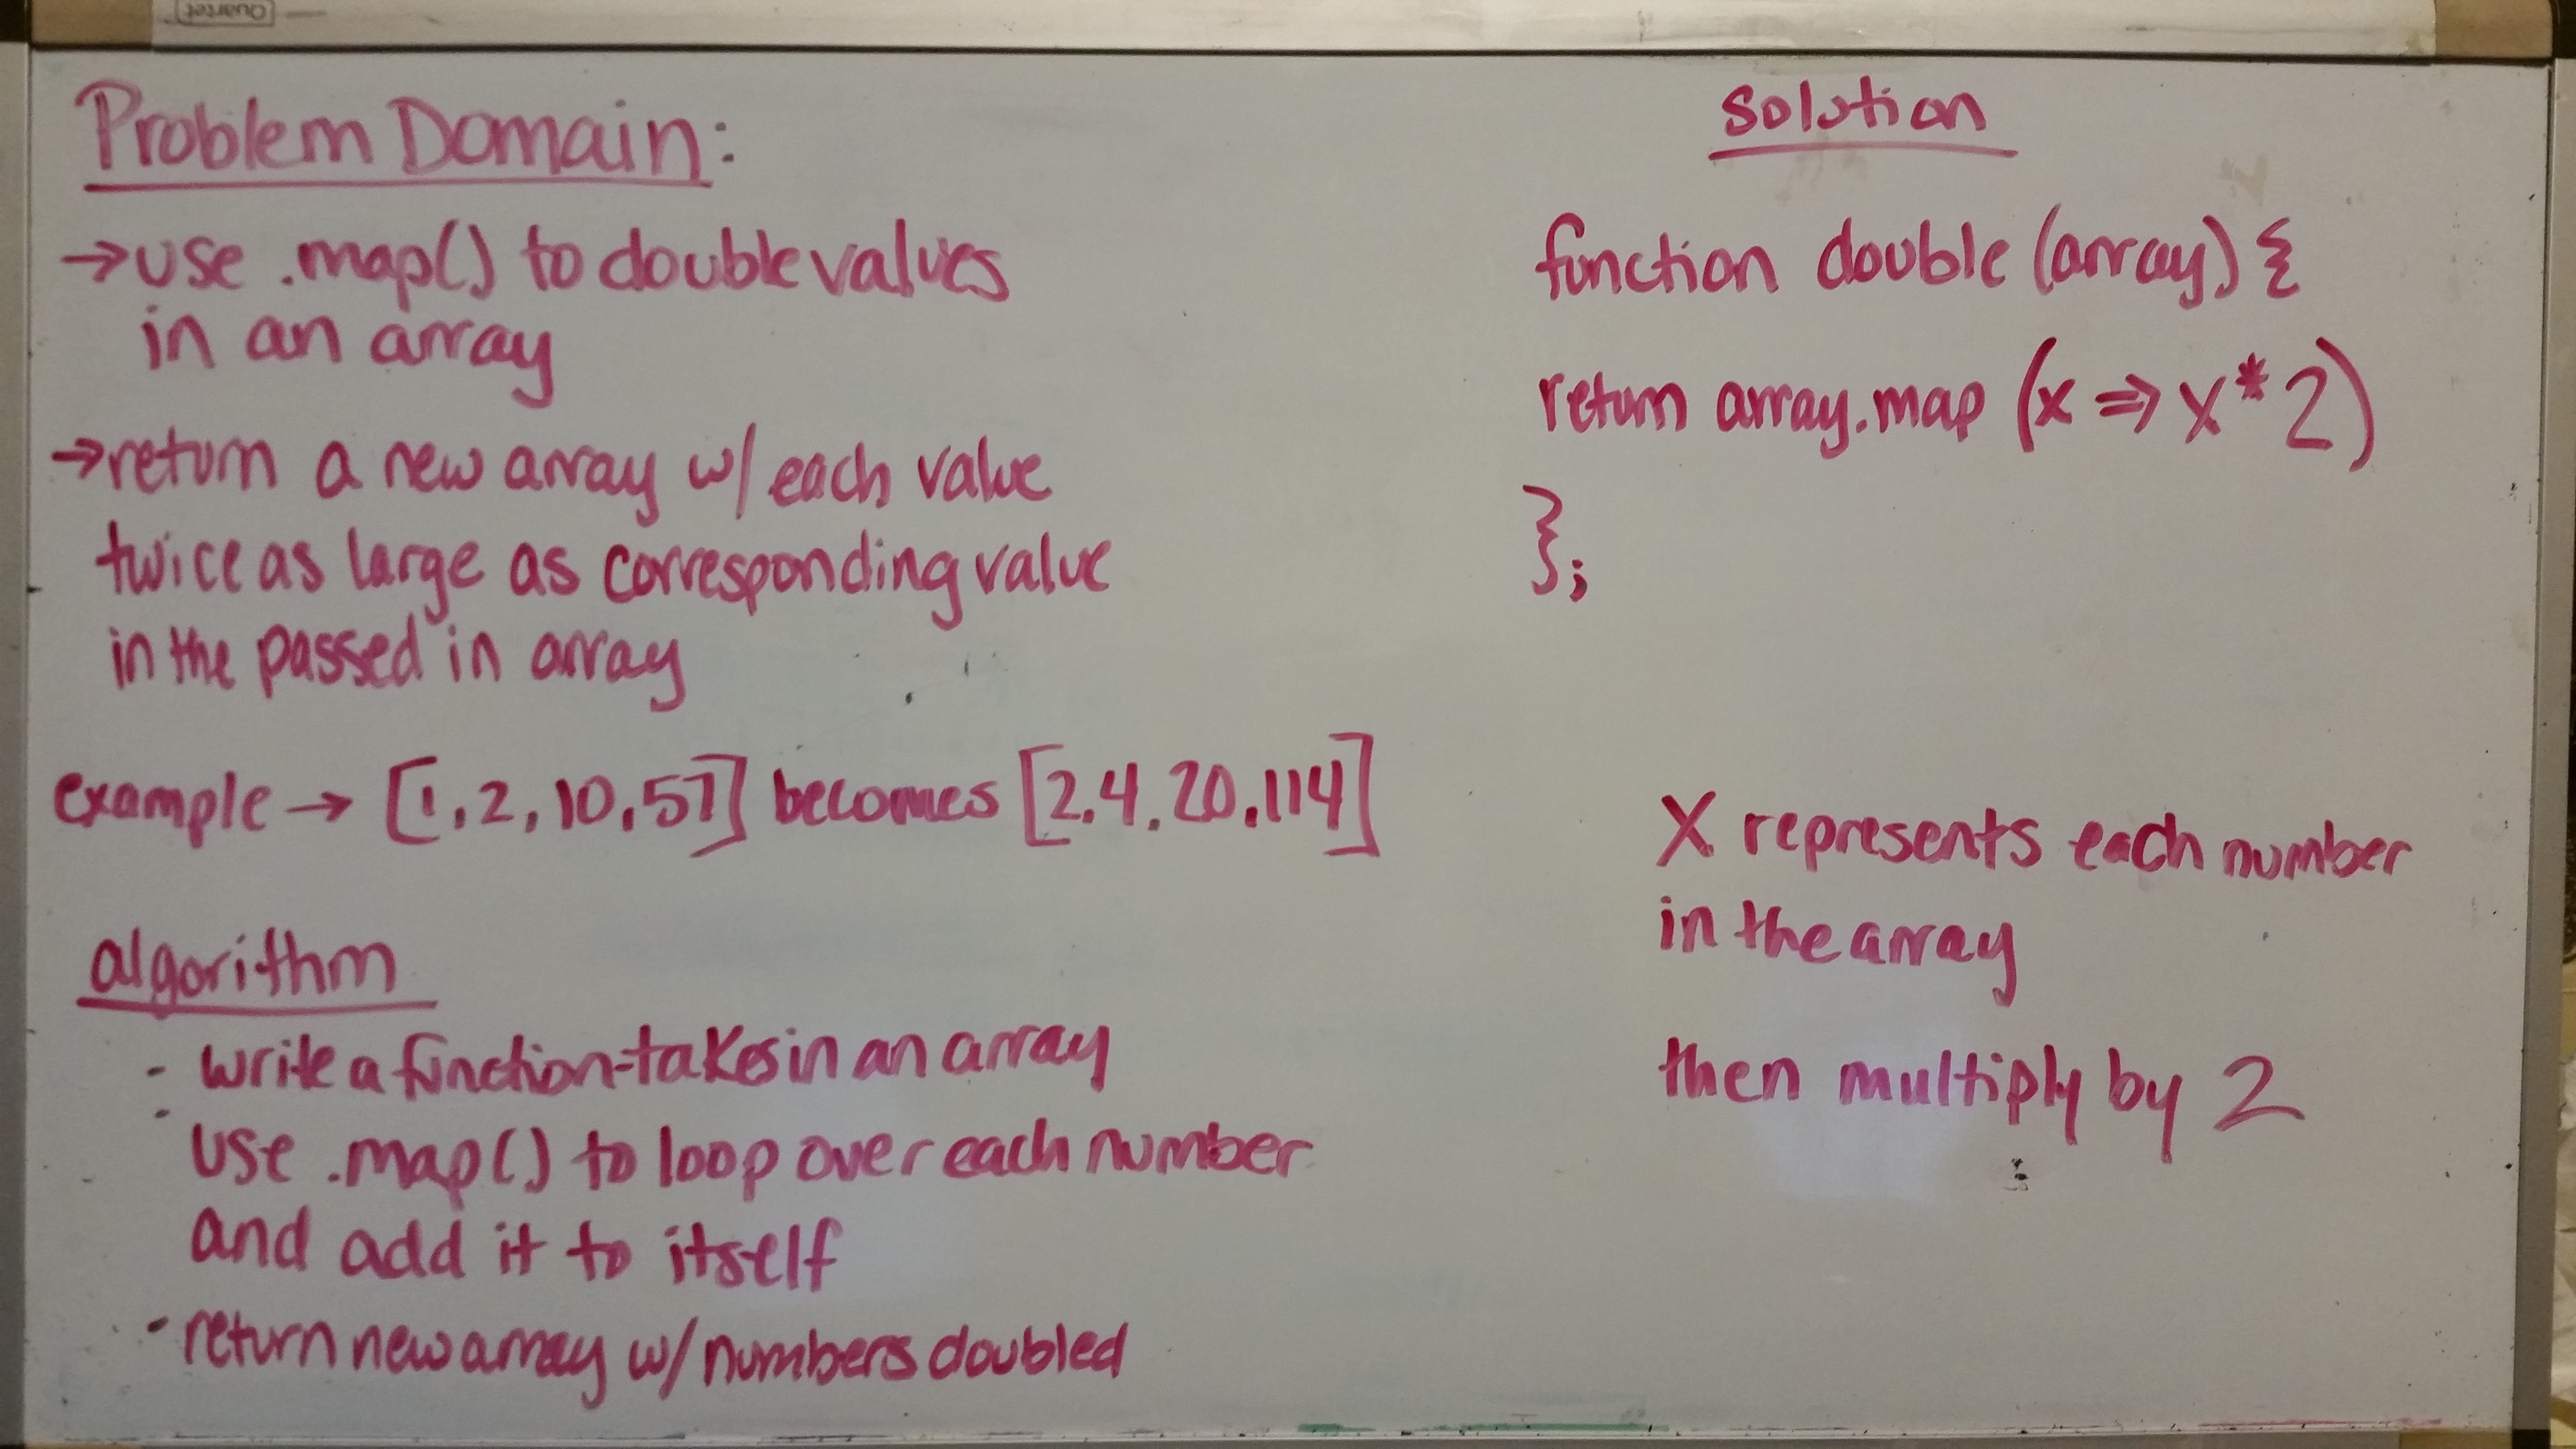 Quartet
Problem Domain:
→ use .map() to double values
in an array
→ return a new array w/ each value
twice as large as corresponding value
in the passed in array
example → [1, 2, 10, 57] becomes [2, 4, 20, 114]
algorithm
- write a function - takes in an array
- use .map() to loop over each number
and add it to itself
- return new array w/ numbers doubled
solution
function double (array) {
return array.map (x => x * 2)
};
X represents each number
in the array
then multiply by 2